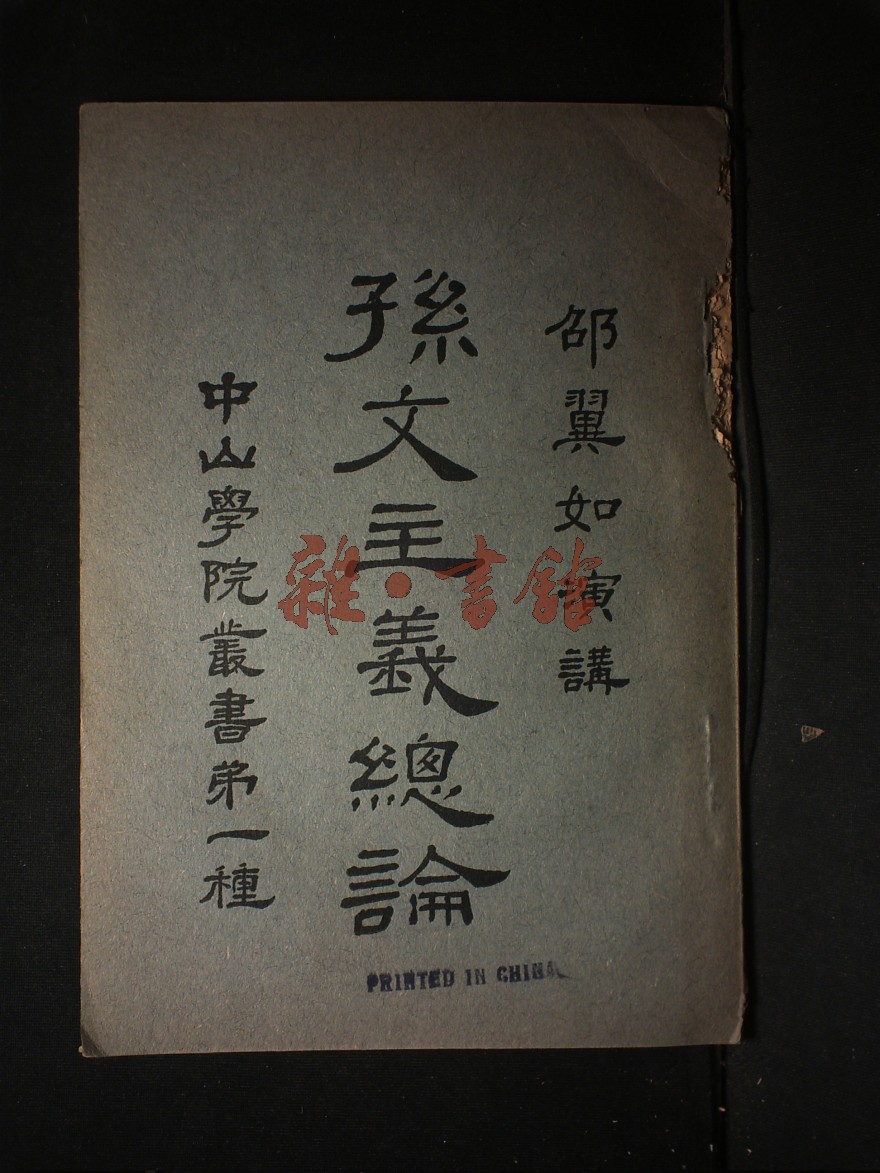 邵翼如演講
孫文主義總論
中山學院叢書弟一種
雜·書館
PRINTED IN CHINA